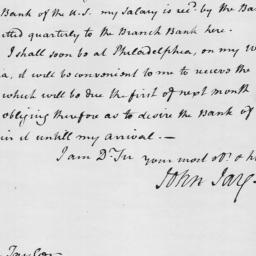 Bank of the U.S. my Salary is rec.d by the Ban
tted quarterly to the Branch Bank here.
I shall soon be at Philadelphia, on my W
a, it will be convenient to me to receive the
which will be due the first of next month
obliging therefore as to desire the Bank of
in it untill my arrival.—
I am Dr. Sir your most ob.t & h
John Jay
Taylor